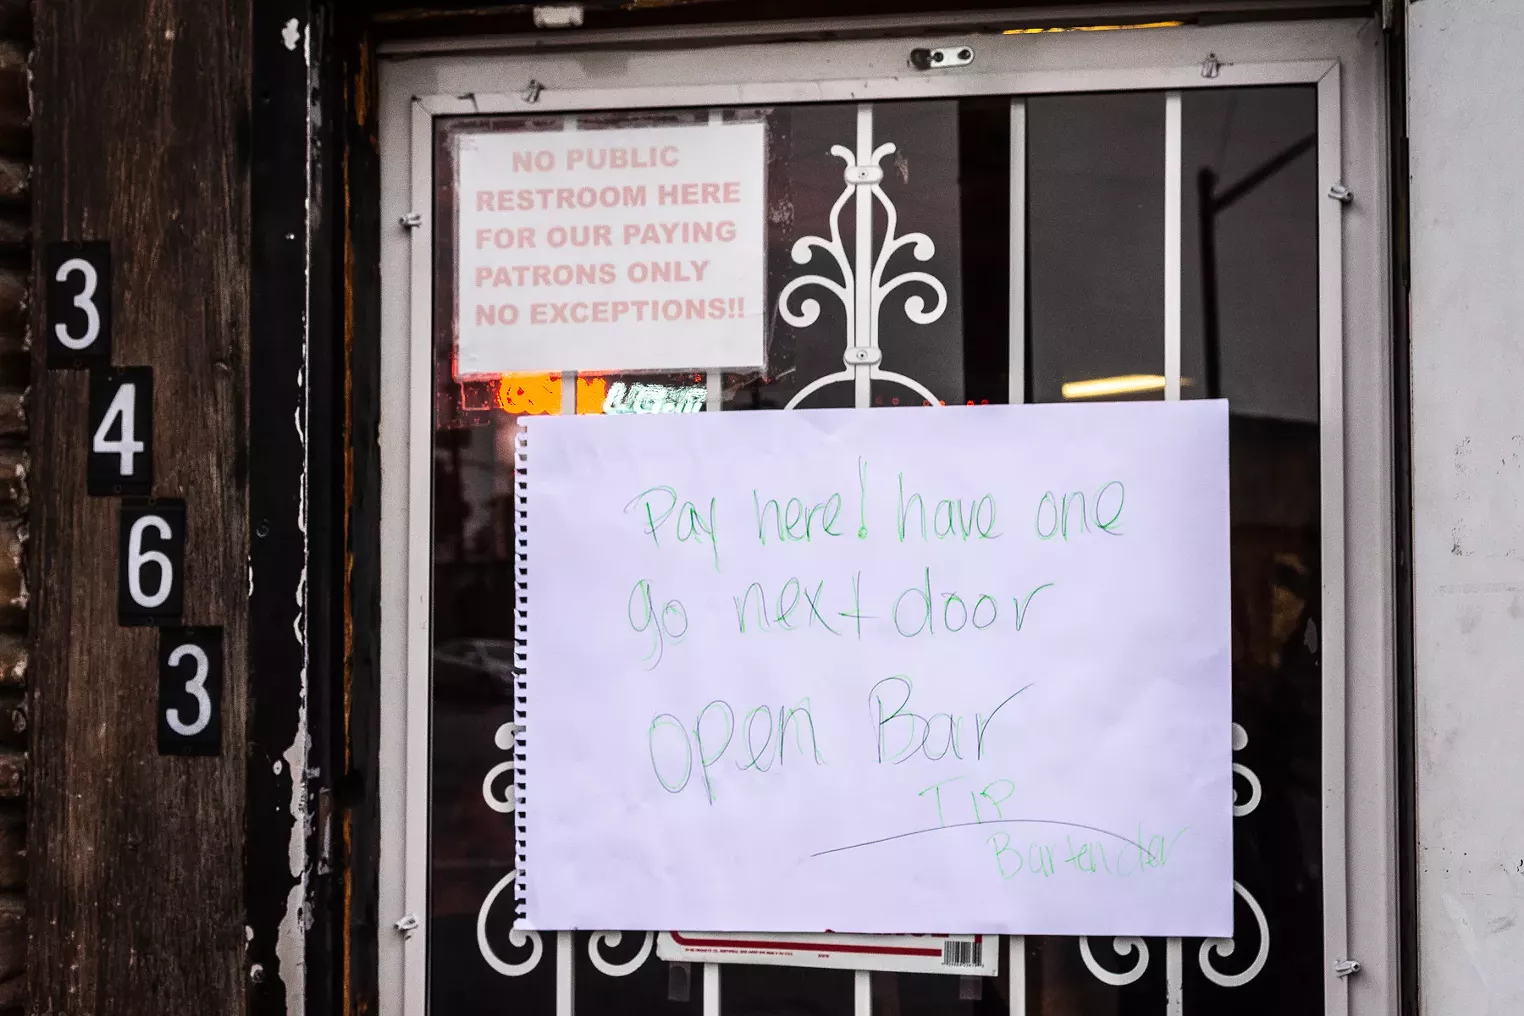 NO PUBLIC
RESTROOM HERE
FOR OUR PAYING
PATRONS ONLY
NO EXCEPTIONS!!
3
4
6
3
Pay here! have one
go next door
open Bar
TIP
Bartender